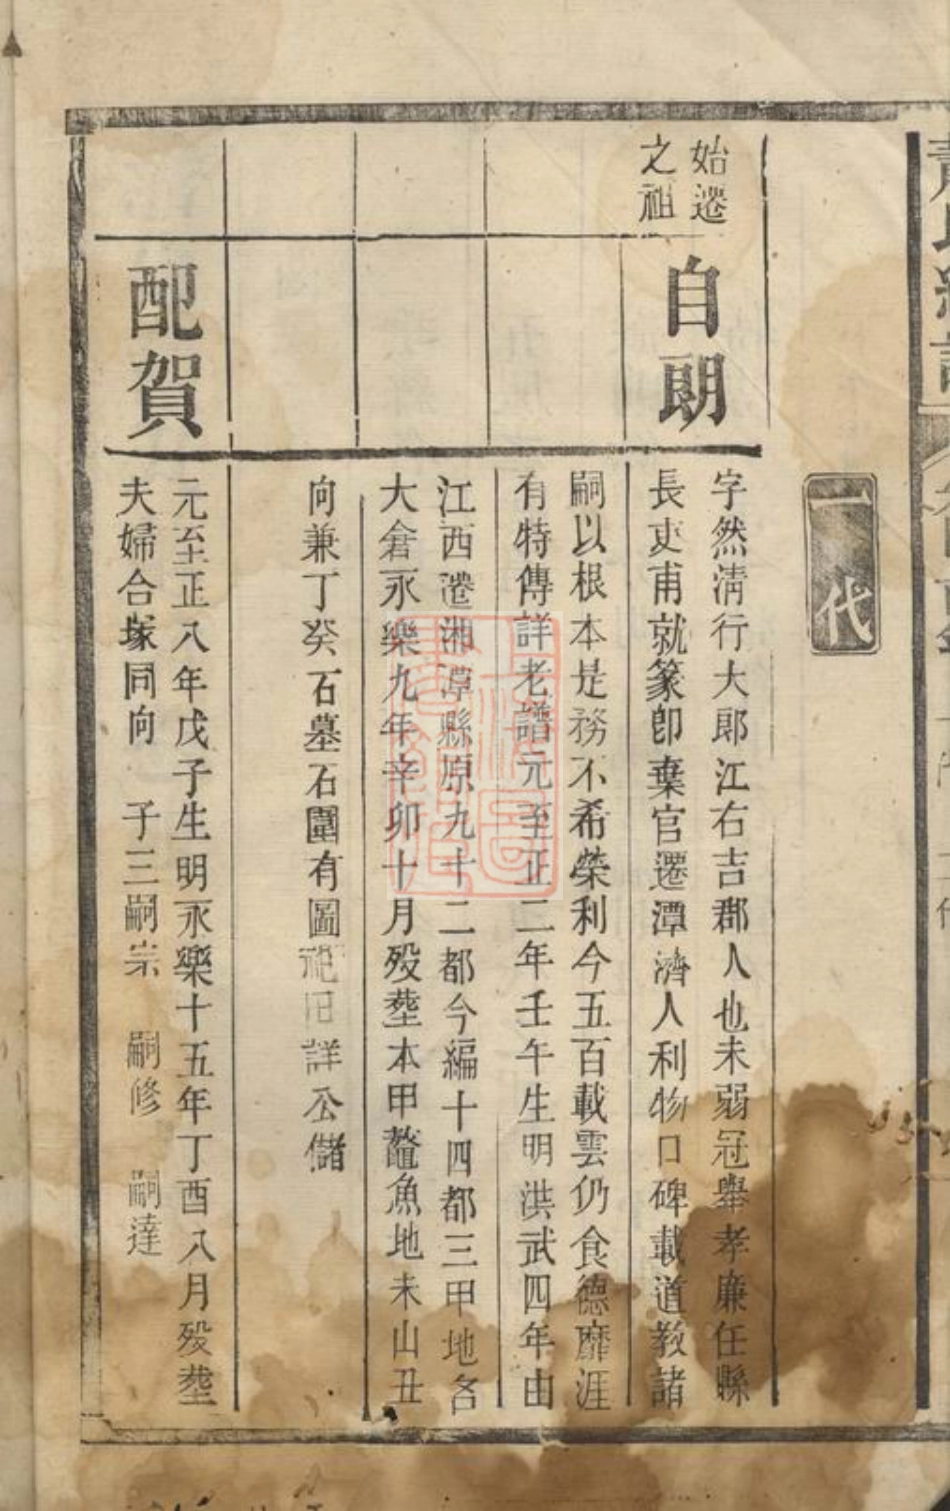 一代
始遷
之祖
自朗
字然淸行大郞江右吉郡人也未弱冠舉孝廉任縣
長吏甫就篆卽棄官遷潭濟人利物口碑載道教諸
嗣以根本是務不希榮利今五百載雲仍食德靡涯
有特傳詳老譜元至正二年壬午生明洪武四年由
江西遷湘潭縣原九十二都今編十四都三甲地名
大倉永樂九年辛卯十月歿塟本甲鼇魚地未山丑
向兼丁癸石墓石圍有圖 詳公儲
配賀
元至正八年戊子生明永樂十五年丁酉八月歿塟
夫婦合塚同向 子三嗣宗 嗣修 嗣達